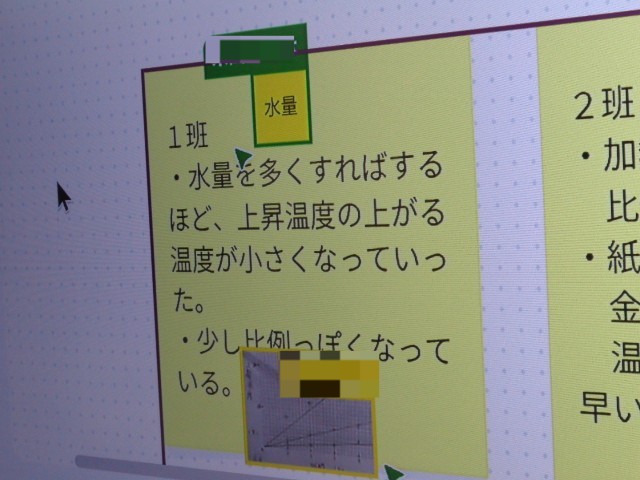 水量
1班
・水量を多くすればする
ほど、上昇温度の上がる
温度が小さくなっていっ
た。
・少し比例っぽくなって
いる。
2班
・加
比
・紙
金
温
早い